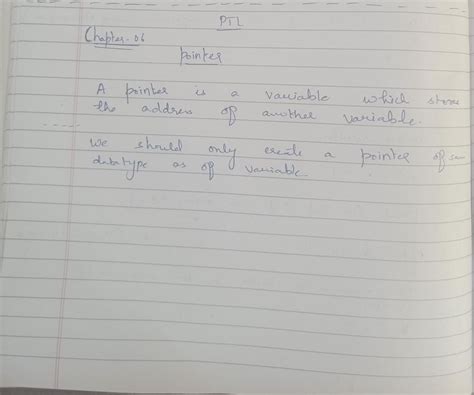 PTL
Chapter-06
pointer
A pointer is a variable which stores
the address of another variable.
we should only create a pointer of
datatype as of variable.